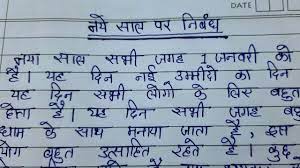 DATE
नये साल पर निबंध
नया साल सभी जगह 1 जनवरी को
है। यह दिन नई उम्मीदों का दिन
यह दिन सभी लोगों के लिए बहुत
होता है। यह दिन सभी जगह
धाम के साथ मनाया जाता है, इस
लोग बहुत उत्साहित रहते हैं। कुछ